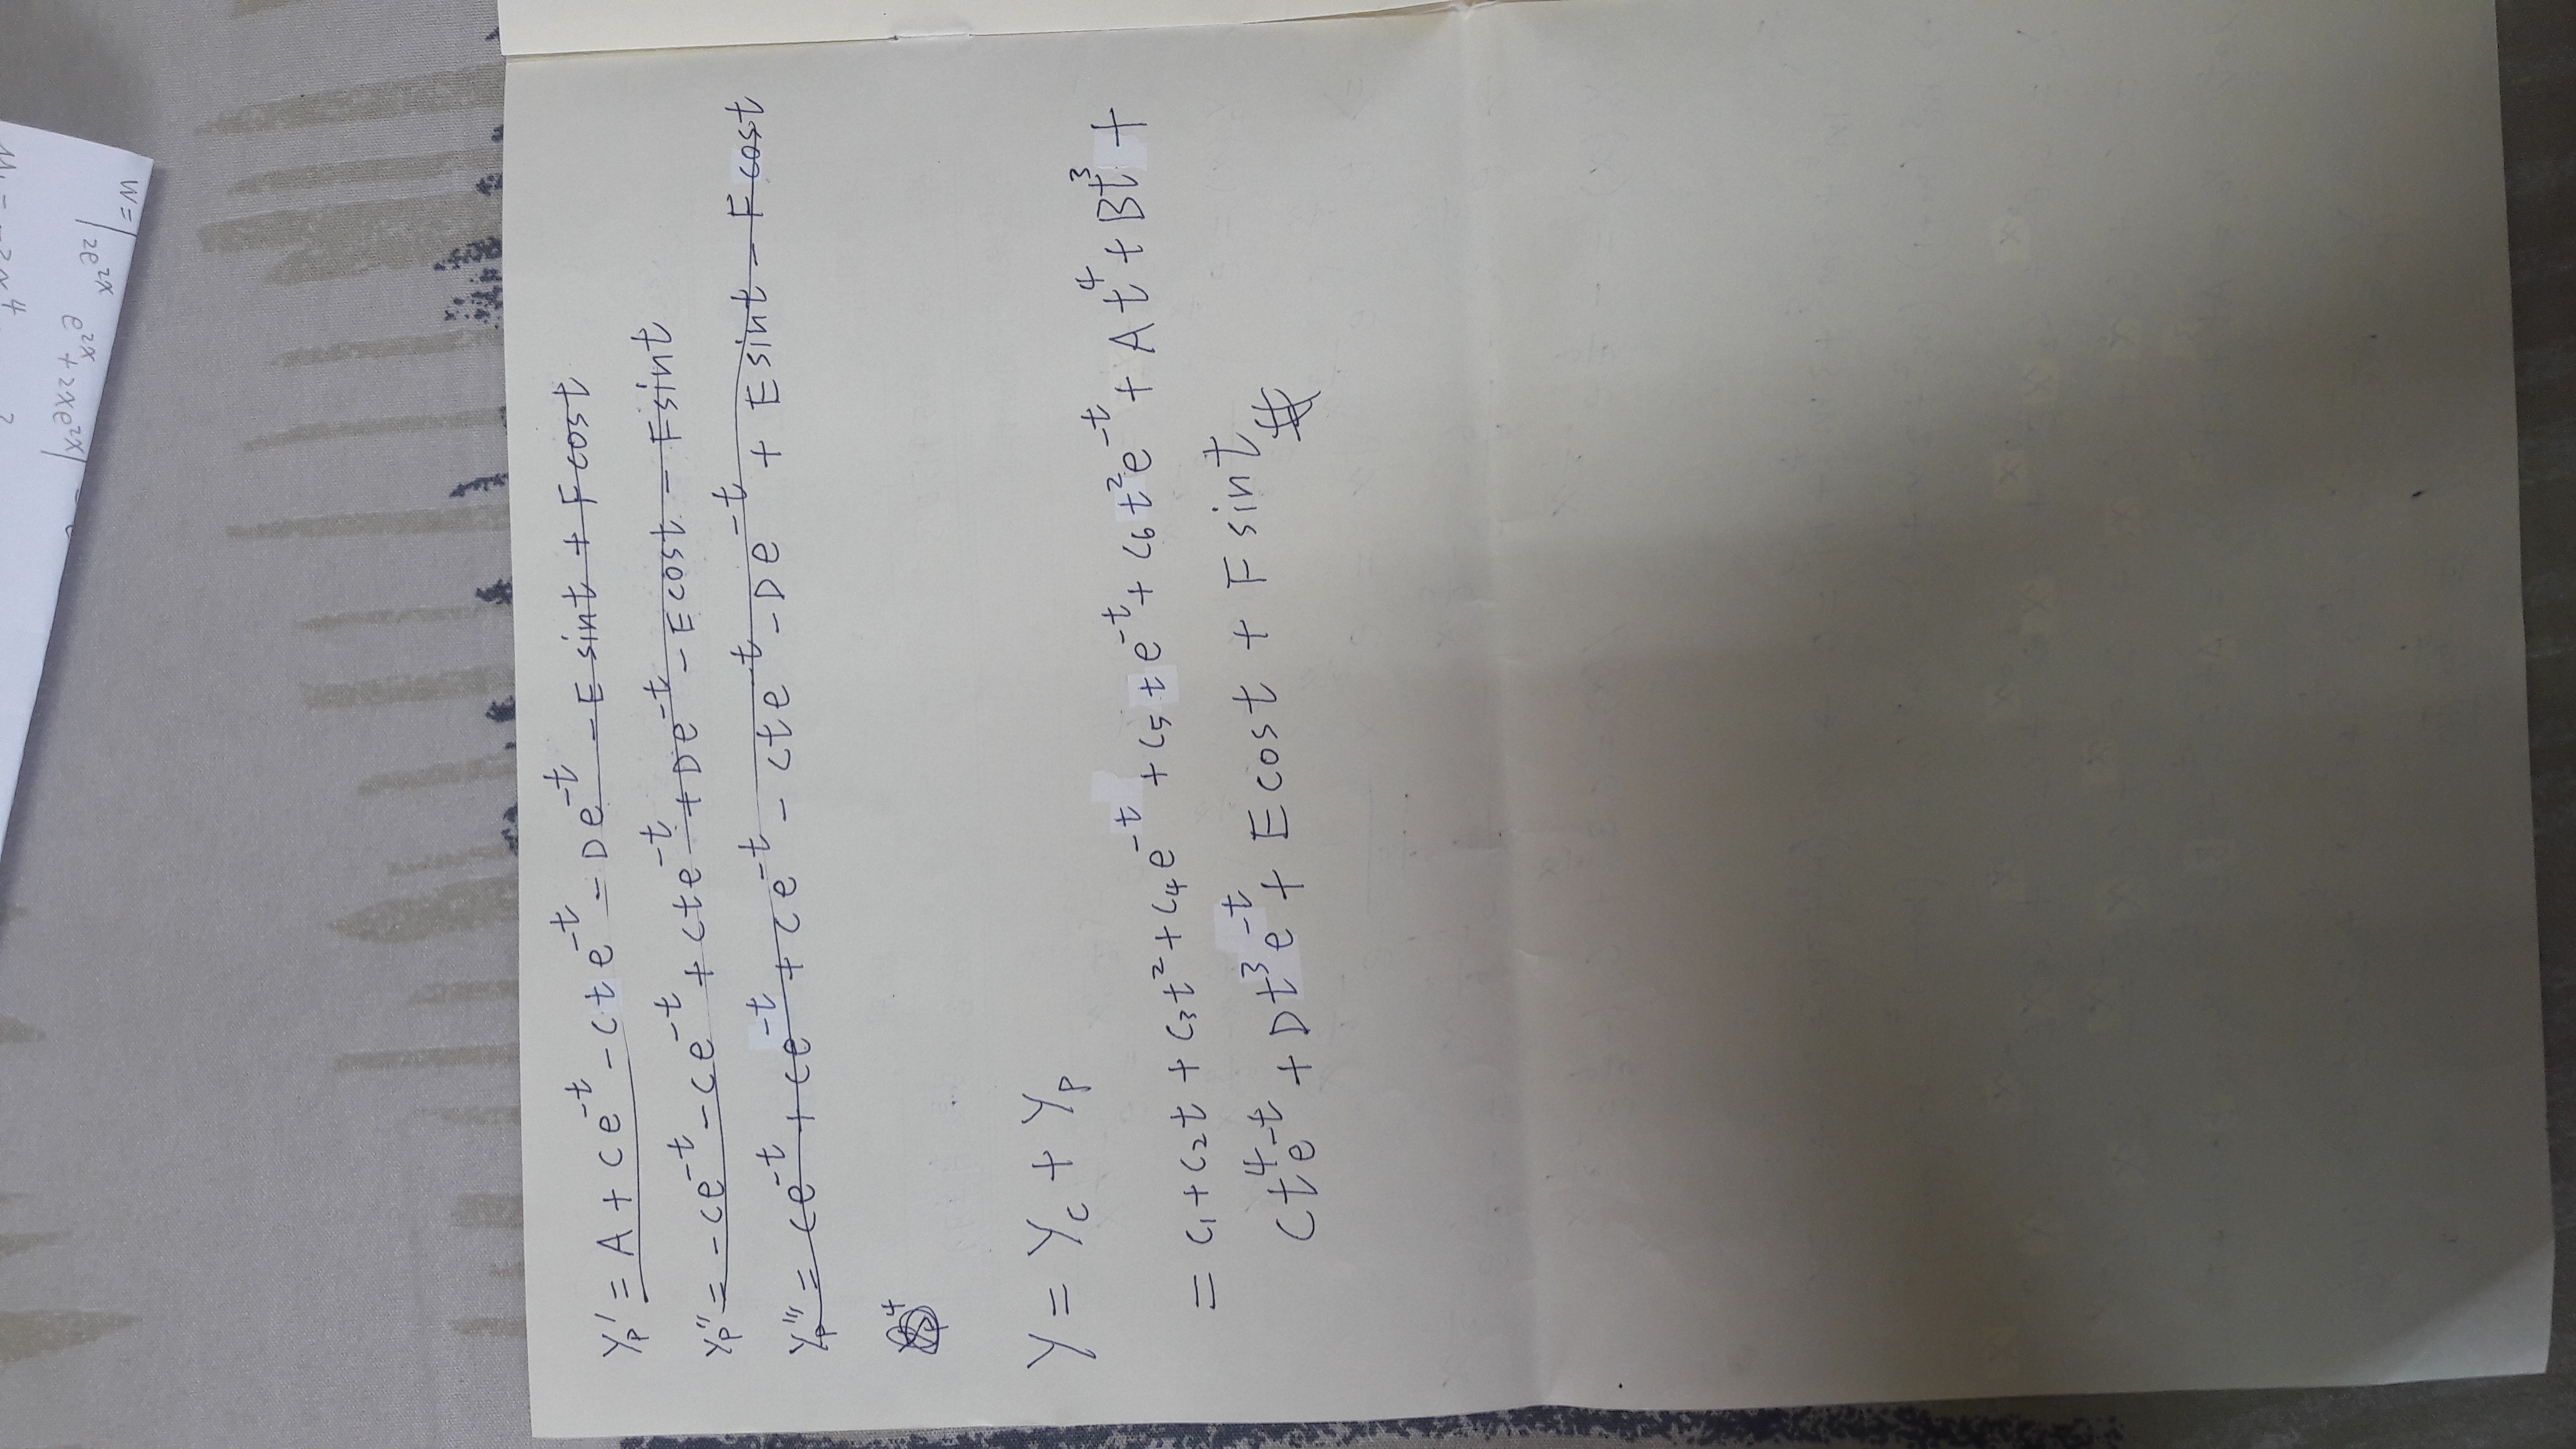 W = | 2e^2x e^2x + 2xe^2x |
Yp' = A + Ce^-t - Cte^-t - De^-t - E sint + F cost
Yp'' = -Ce^-t - Ce^-t + Cte^-t + De^-t - E cost - F sint
Yp''' = Ce^-t + Ce^-t + Ce^-t - Cte^-t - De^-t + E sint - F cost
4
Y = Yc + Yp
= C1 + C2t + C3t^2 + C4e^-t + C5te^-t + C6t^2e^-t + At^4 + Bt^3 +
Ct^4e^-t + Dt^3e^-t + E cost + F sint #